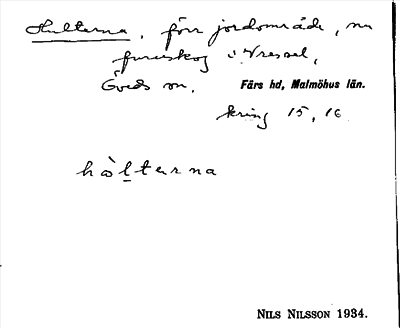 Hulterna, förr jordområde, nu
furuskog i Vressel,
Öveds sn. Färs hd, Malmöhus län.
kring 15, 16
hòlterna
NILS NILSSON 1934.